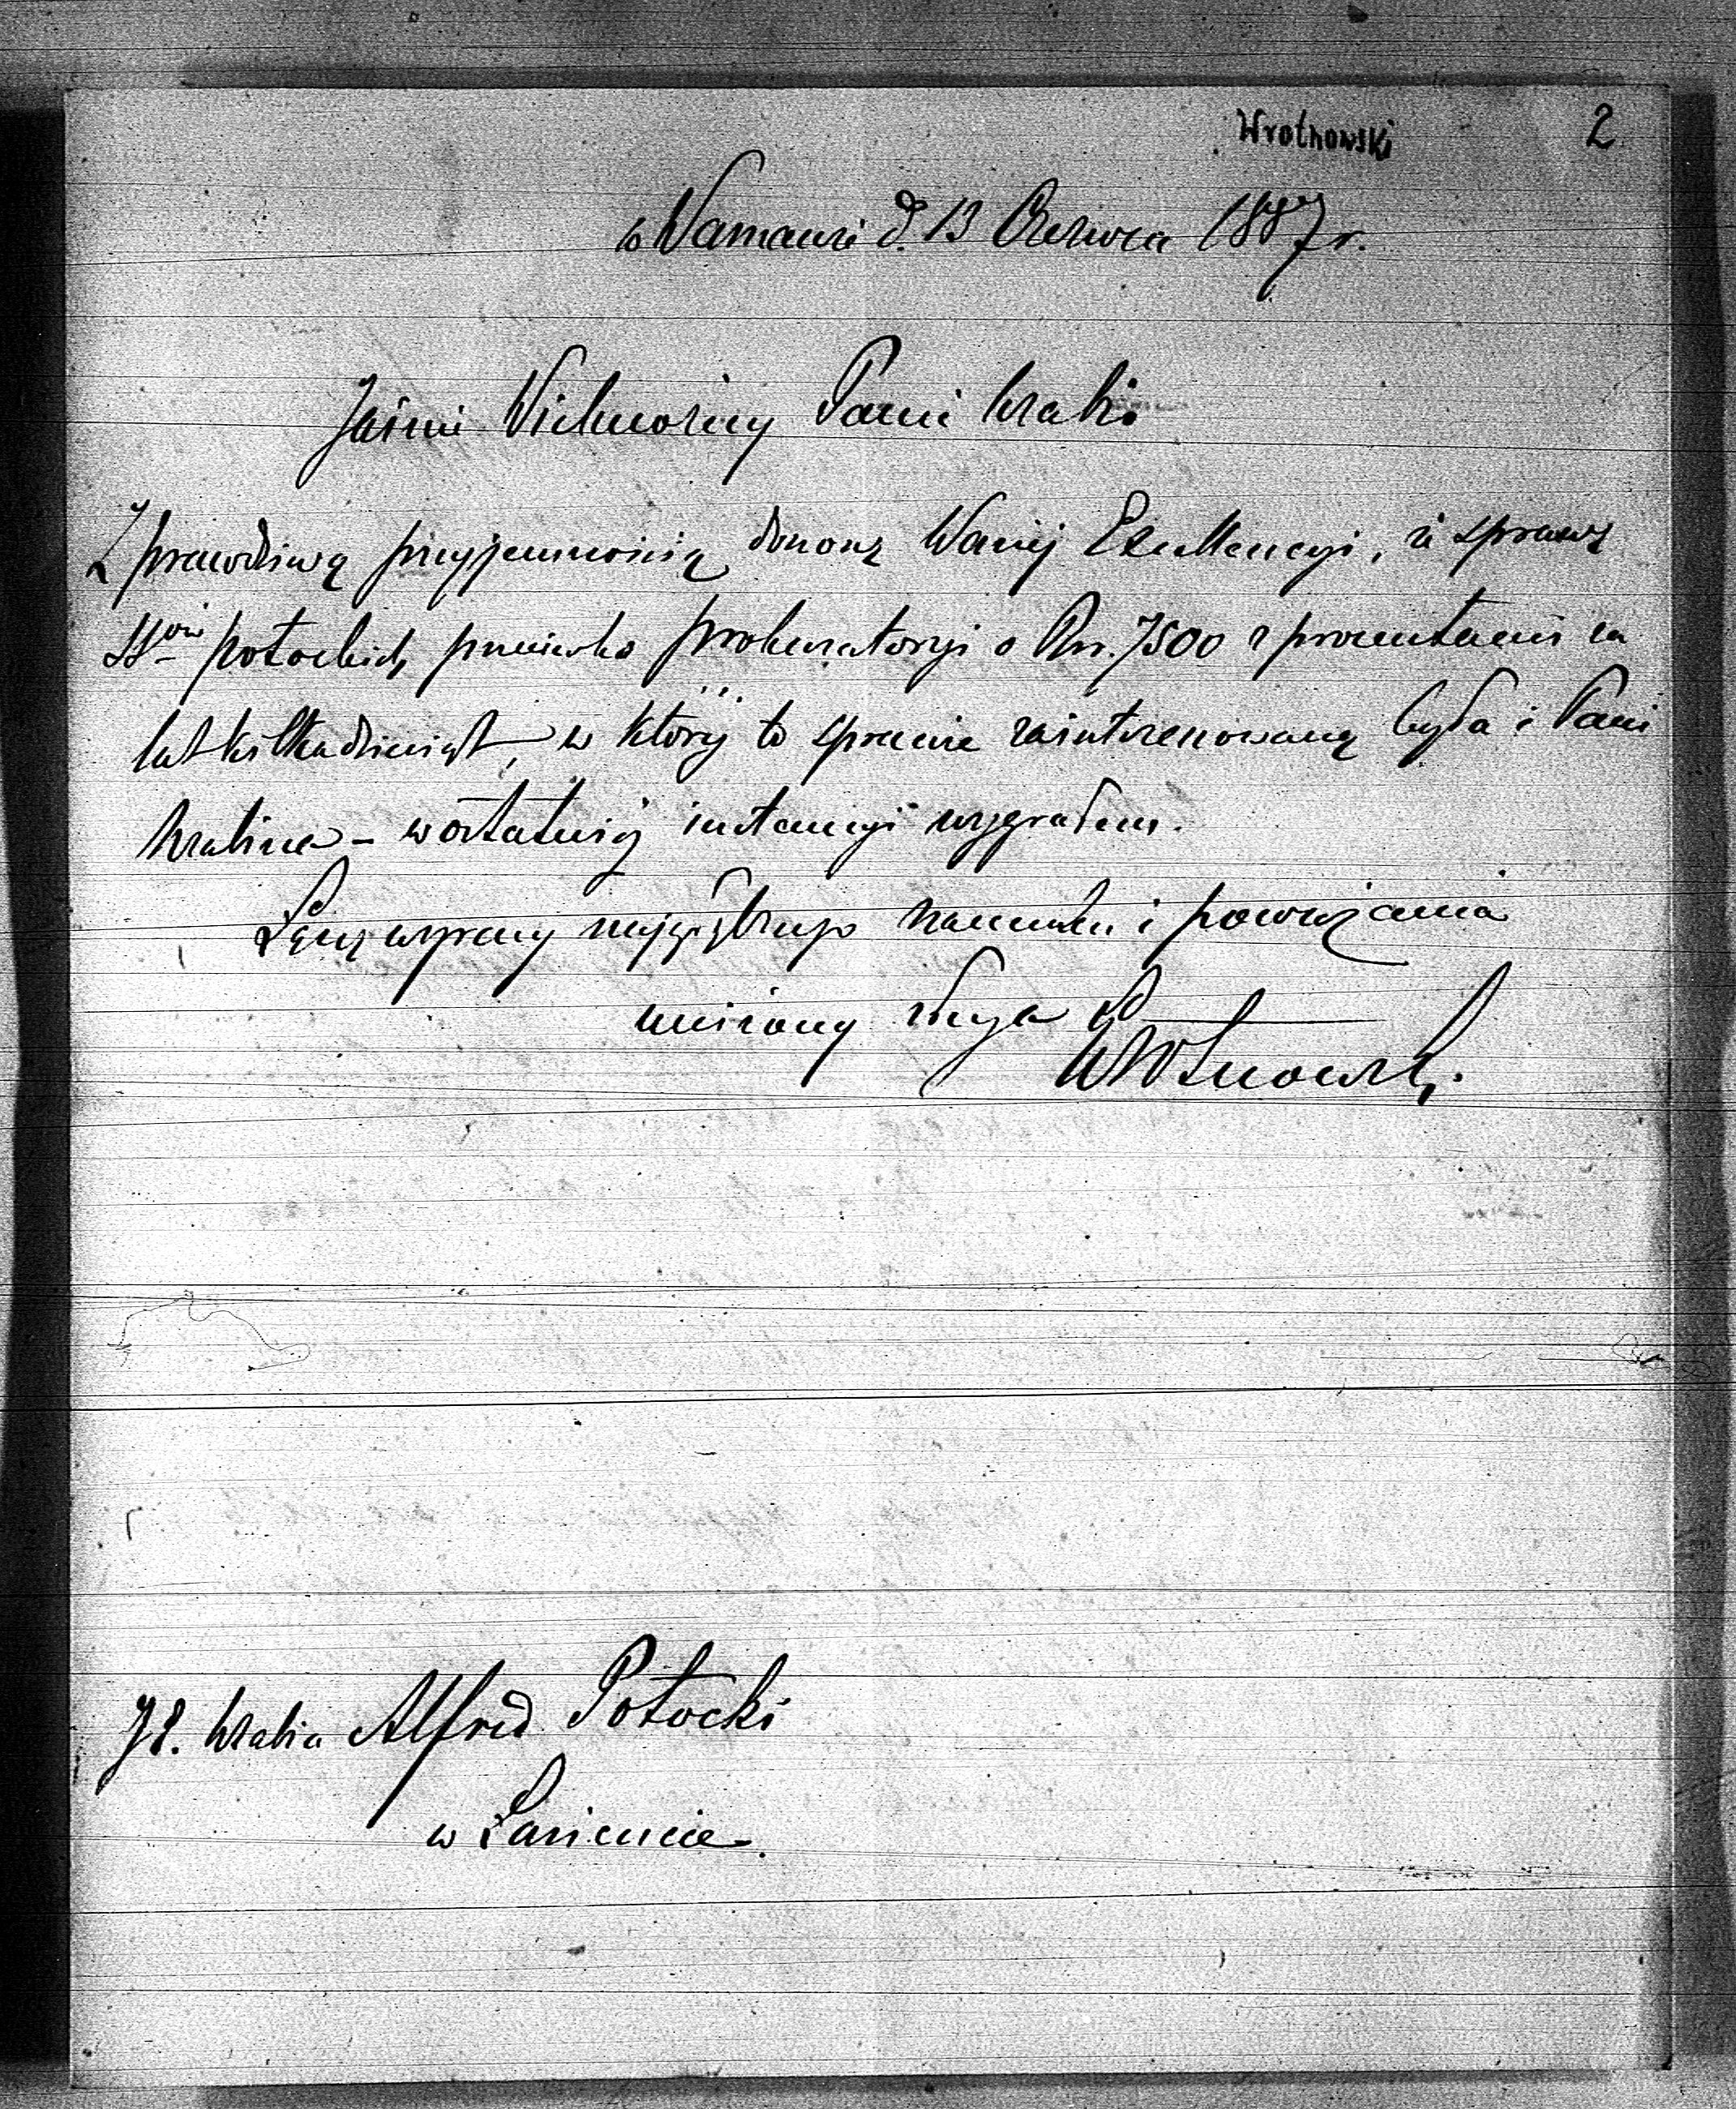 Wrotnowski 2
w Warszawie d. 13 Czerwca 1887 r.
Jaśnie Wielmożny Panie Hrabio
Z prawdziwą przyjemnością donoszę Waszej Excellencyi, iż sprawę
SSów Potockich przeciwko prokuratoryi o Rsr. 7500 z procentami za
lat kilkadziesiąt, w której to sprawie zainteresowaną była i Pani
Hrabina – w ostatniej instancyi wygrałem.
Łączę wyrazy najgłębszego szacunku i poważania
uniżony sługa
Wrotnowski.
JE. Hrabia Alfred Potocki
w Łańcucie.